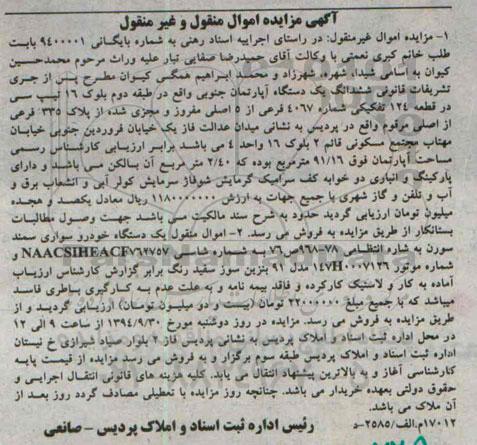 آگهی مزایده اموال منقول و غیر منقول
۱- مزایده اموال غیرمنقول: در راستای اجراییه اسناد رهنی به شماره بایگانی ۹۴۰۰۰۰۱ بابت
طلب خانم کبری نعمتی با وکالت آقای حمیدرضا صفایی تبار علیه وراث مرحوم محمدحسین
کیوان به اسامی شیدا، شهره، شهرزاد و محمد ابراهیم همگی کیوان مطرح پس از جری
تشریفات قانونی ششدانگ یک دستگاه آپارتمان جنوبی واقع در طبقه دوم بلوک ۱۶ تیپ سی
در قطعه ۱۲۴ تفکیکی شماره ۴۰۶۷ فرعی از ۵ اصلی مفروز و مجزی شده از پلاک ۳۳۵ فرعی
از اصلی مرقوم واقع در پردیس به نشانی میدان عدالت فاز یک خیابان فروردین جنوبی خیابان
مهتاب مجتمع مسکونی قائم ۲ بلوک ۱۶ واحد ۴ می باشد برابر ارزیابی کارشناس رسمی
مساحت آپارتمان فوق ۹۱/۱۶ مترمربع بوده که ۲/۴۰ متر مربع آن بالکن می باشد و دارای
پارکینگ و انباری دو خوابه کف سرامیک گرمایش شوفاژ سرمایش کولر آبی و انشعاب برق و
آب و تلفن و گاز شهری با جمیع جهات به ارزش ۱۱۸۰۰۰۰۰۰۰ ریال معادل یکصد و هجده
میلیون تومان ارزیابی گردید حدود به شرح سند مالکیت می باشد جهت وصول مطالبات
بستانکار از طریق مزایده به فروش می رسد. ۲- اموال منقول: یک دستگاه خودرو سواری سمند
سورن به شماره انتظامی ۷۸-۹۶۸ص۷۶ به شماره شاسی NAACSIHEACF۷۶۲۷۵۷ و
شماره موتور ۱۴۷H۰۰۰۷۱۲۶ مدل ۹۱ بنزین سوز سفید رنگ برابر گزارش کارشناس ارزیاب
آماده به کار و لاستیک کارکرده و فاقد بیمه نامه و به علت عدم به کارگیری باطری فاسد
میباشد که با جمیع مبلغ ۲۲۰۰۰۰۰۰ تومان (بیست و دو میلیون تومان) ارزیابی گردید و از
طریق مزایده به فروش می رسد. مزایده در روز دوشنبه مورخ ۱۳۹۴/۹/۳۰ از ساعت ۹ الی ۱۲
در محل اداره ثبت اسناد و املاک پردیس به نشانی پردیس فاز ۲ بلوار صیاد شیرازی خ نیستان
اداره ثبت اسناد و املاک پردیس طبقه سوم برگزار و به فروش می رسد مزایده از قیمت پایه
کارشناسی آغاز و به بالاترین پیشنهاد انتقال می یابد. کلیه هزینه های قانونی انتقال اجرایی و
حقوق دولتی بعهده خریدار می باشد. چنانچه روز مزایده با تعطیلی مصادف گردد روز بعد از
آن ملاک می باشد.
۱۷۰۱۲م.الف/۲۵۸۵-د
رئیس اداره ثبت اسناد و املاک پردیس - صانعی